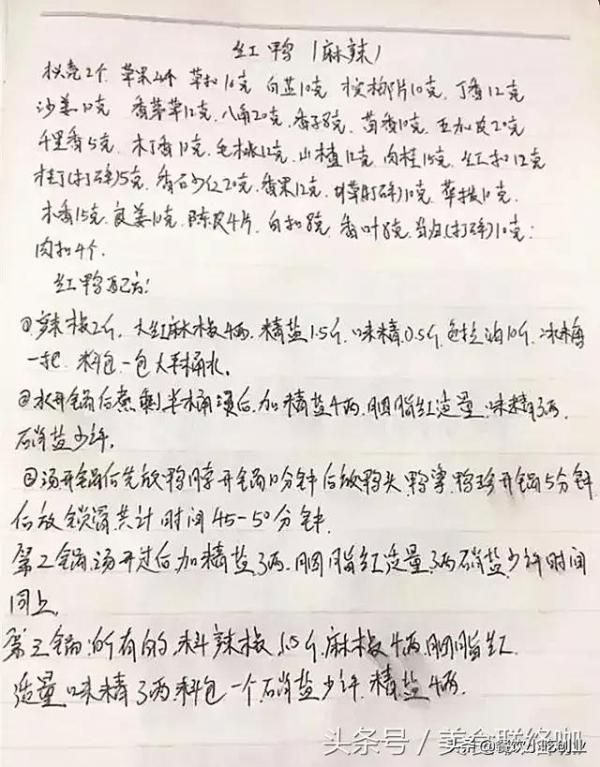 红鸭(麻辣)
枳壳2个 草果4个 草扣16克 白芷10克 槟榔片10克、丁香12克
沙姜10克 香茅草12克、八角20克、香子8克、茴香10克、五加皮20克
千里香5克、木丁香10克、毛桃12克、山楂12克、肉桂15克、红扣12克
桂丁(打碎)5克、香石少仁20克、香果12克、甘草(打碎)10克、荜拨10克、
木香15克、良姜10克、陈皮4片、白扣8克、香叶8克、当归(打碎)10克:
肉扣4个.
红鸭配方:
①辣椒2斤、大红麻椒4两、精盐1.5斤、味精0.5斤、色拉油10斤、冰糖
一把、料包一包大半桶水。
②水开锅后煮剩半桶汤后、加精盐4两、胭脂红适量、味精3两、
硝盐少许。
③汤开锅后先放鸭脖开锅10分钟后放鸭头、鸭掌、鸭珍开锅5分钟
后放锁骨共计时间45-50分钟.
第二锅:汤开过后、加精盐3两、胭脂红适量、3两硝盐少许时间
同上。
第三锅:所有的料辣椒1.5斤、麻椒4两、胭脂红
适量、味精3两、料包一个、硝盐少许、精盐4两。
头条号/美食联络咖
@餐饮小吃创业